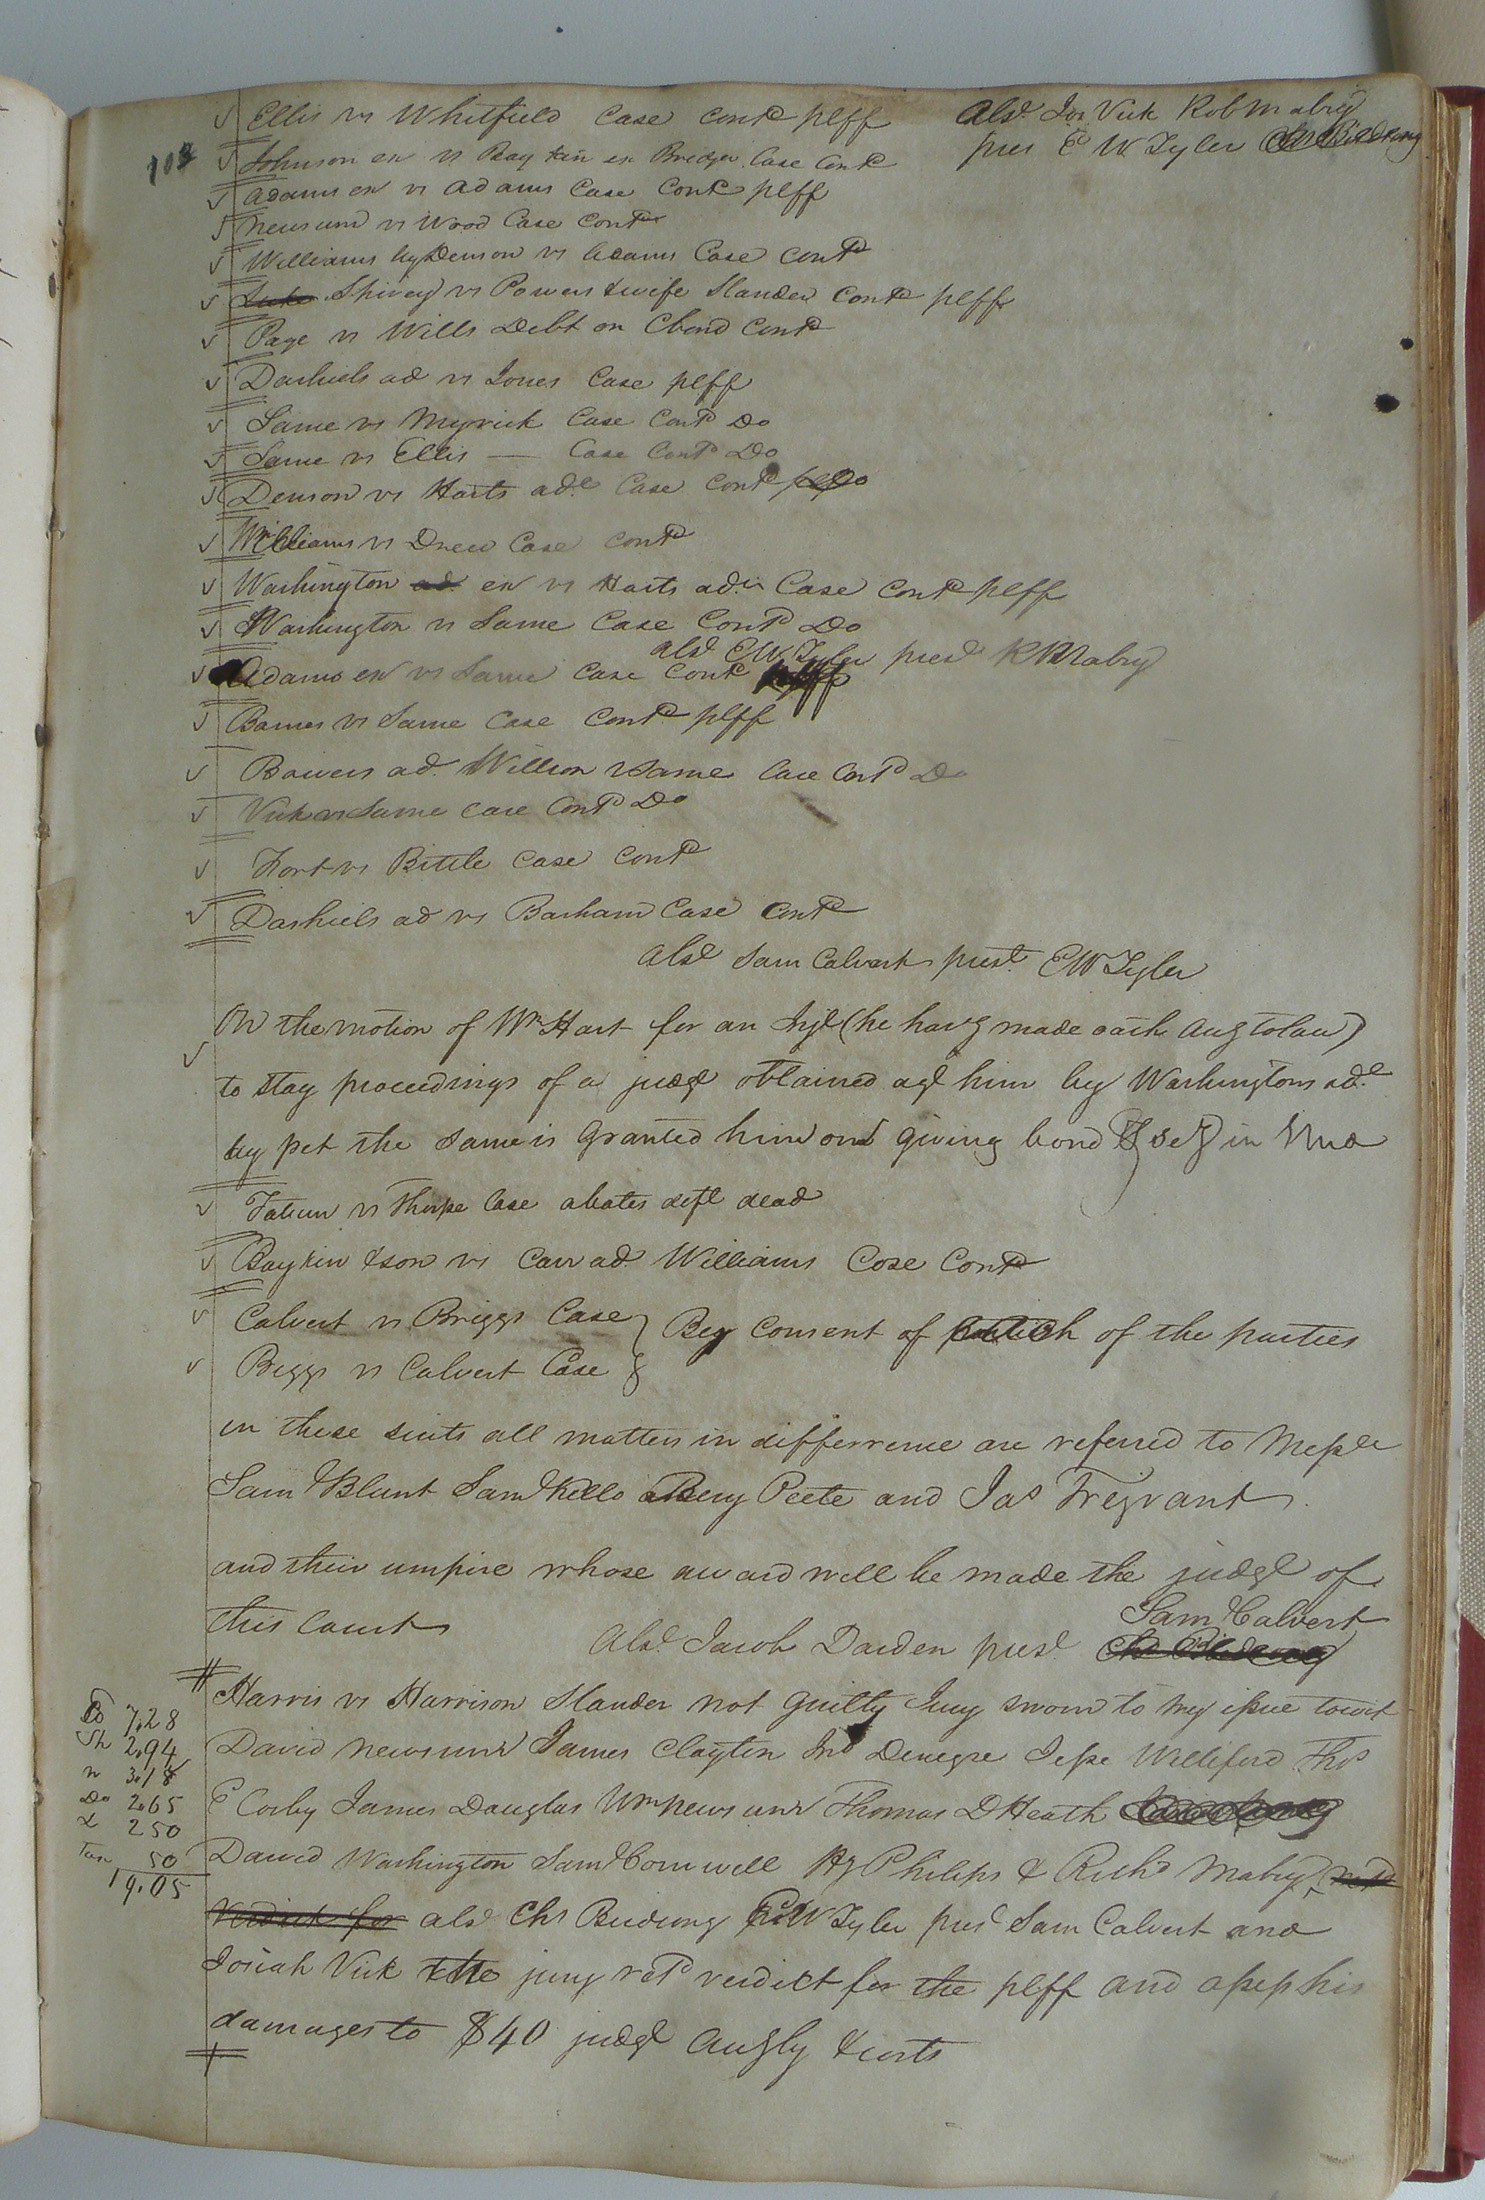 Ellis vs Whitfield Case contd plff Absd Jos Vick Rob Mabry
pres E W Tyler
108 Johnson ex vs Boykin ex Bridger Case Contd
Adams ex vs Adams Case Contd plff
Newsum vs Wood Case Contd
Williams by Denson vs Adams Case Contd
Spivey vs Powers & wife Slander Contd plff
Page vs Wills Debt on Cbond Contd
Dashiels ad vs Jones Case plff
Same vs Myrick Case Contd Do
Same vs Ellis — Case Contd Do
Denson vs Harts ade Case Contd Do
Williams vs Drew Case Contd
Washington ex vs Harts adr Case Contd plff
Washington vs Same Case Contd Do
absd EW Tyler presd R Mabry
Adams ex vs Same Case Contd
Barnes vs Same Case Contd plff
Bowers ad Willson vs Same Case Contd Do
Vick vs Same Case Contd Do
Fort vs Bittle Case Contd
Dashiels ad vs Barham Case Contd
absd Sam Calvert prest EW Tyler
On the motion of Wm Hart for an Injd (he havg made oath Accg to law)
to stay proceedings of a judgt obtained agt him by Washingtons ade
by pet the same is Granted him on giving bond & secy in
Tatum vs Thorpe Case abates deft dead
Boykin & son vs Carr ad Williams Case Contd
Calvert vs Briggs Case } By Consent of of the parties
Briggs vs Calvert Case
in these suits all matters in differrence are referred to Messrs
Saml Blunt Saml Kello Benj Peete and Jas Trezvant
and their umpire whose award will be made the judgt of
this Court
Absd Jacob Darden prest Saml Calvert
Harris vs Harrison Slander not guilty Jury sworn to try issue towit
7.28
2.94
3.18
Do 2.65
250
Tax 50
19.05
David Newsum James Clayton Jno Denegre Jesse Williford Thos
E Corby James Douglas Wm Newsum Thomas D Heath
David Washington Saml Cornwell Hy Philips & Richd Mabry
verdict for absd Chs Birdsong EW Tyler prest Sam Calvert and
Josiah Vick the jury retd verdict for the plff and assess his
damages to $40 judgt Accgly & costs